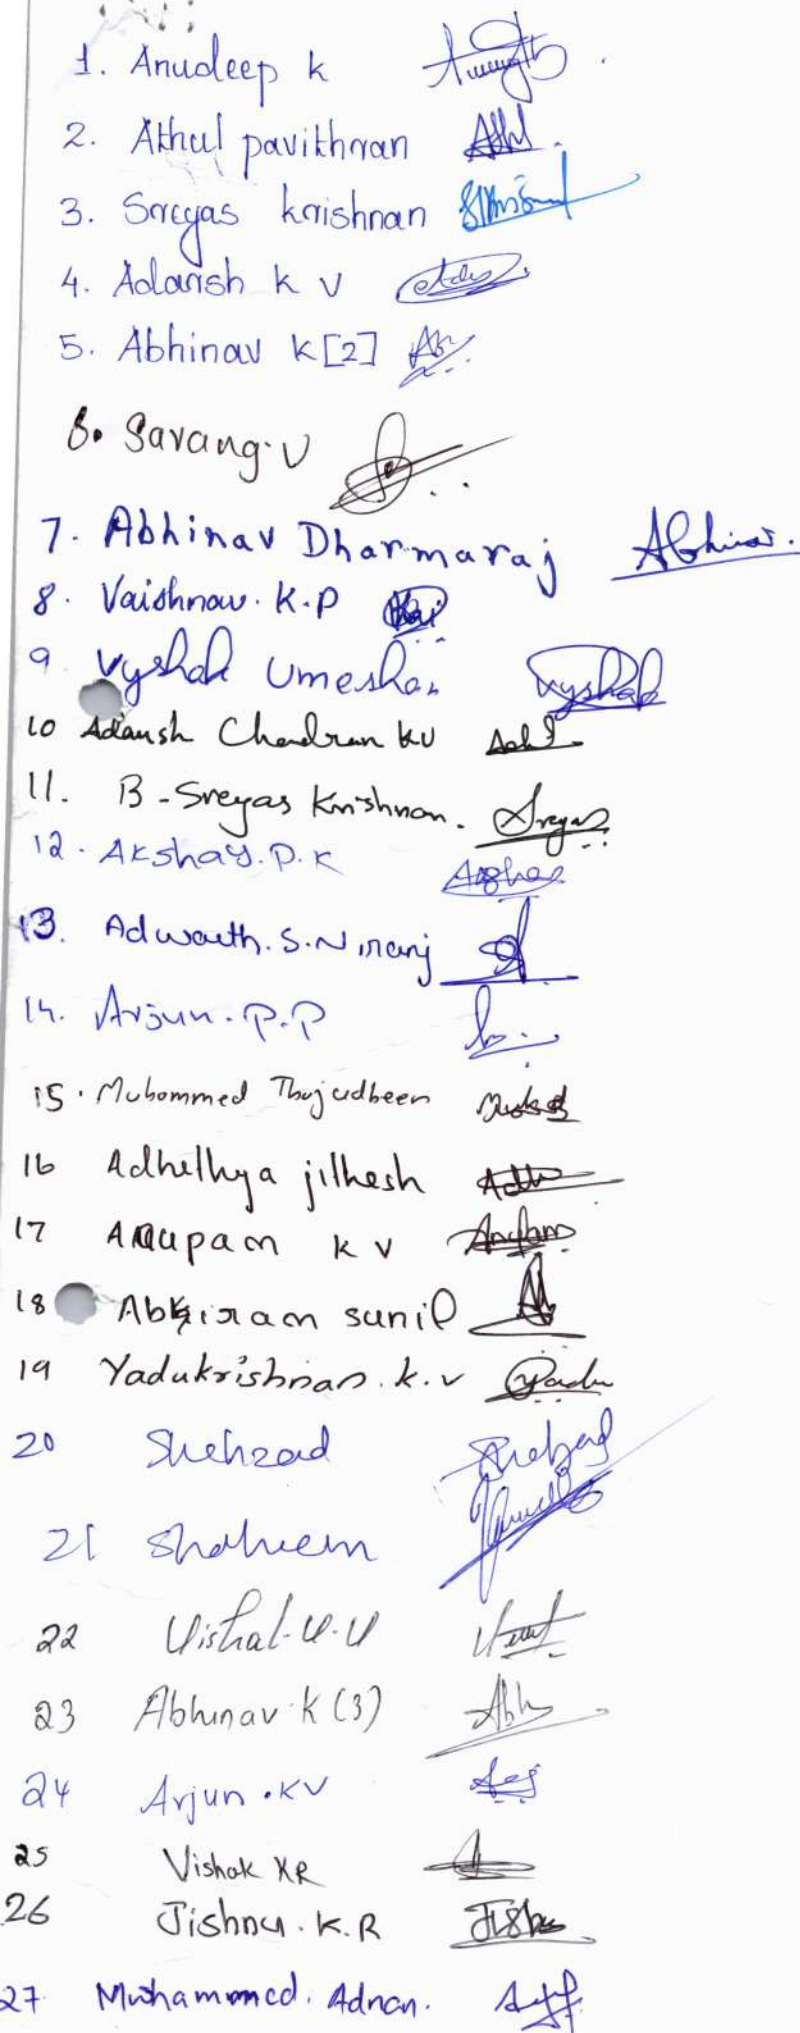 1. Anudeep k
2. Athul pavithran
3. Sreyas krishnan
4. Adarsh k v
5. Abhinav k[2]
6. Sarang.v
7. Abhinav Dharmaraj Abhinav.
8. Vaishnav. K.P
9 Vyshak Umeshan Vyshak
10 Adarsh Chandran KV
11. B-Sreyas Krishnan. Sreyas
12. Akshay.P.K
13. Adwaith.S.Niranj
14. Arjun.P.P
15. Muhommed Thajudheen
16 Adhethya jithesh
17 Anupam k v
18 Abhiram sunil
19 Yadukrishnan.k.v Yadu
20 Shehzad Shehzad
21 Shaheem
22 Vishal.V.V
23 Abhinav.K(3)
24 Arjun.KV
25 Vishak KR
26 Jishnu.K.R
27 Muhammed. Adnan.